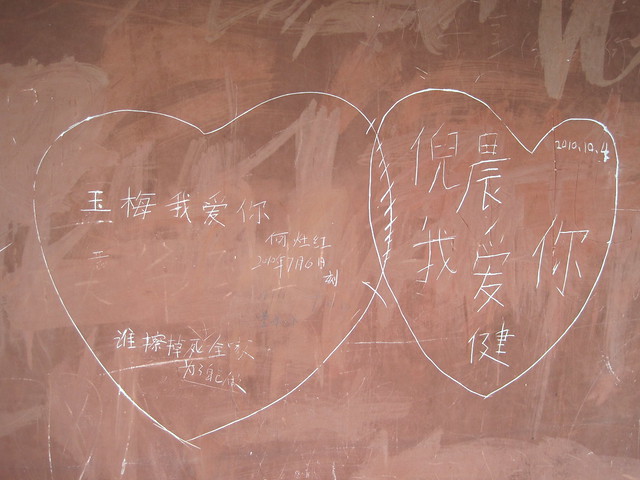 玉梅我爱你
何灶红
2010年7月6日
刻
谁擦掉死全家
2010.10.4
倪晨
我爱你
健